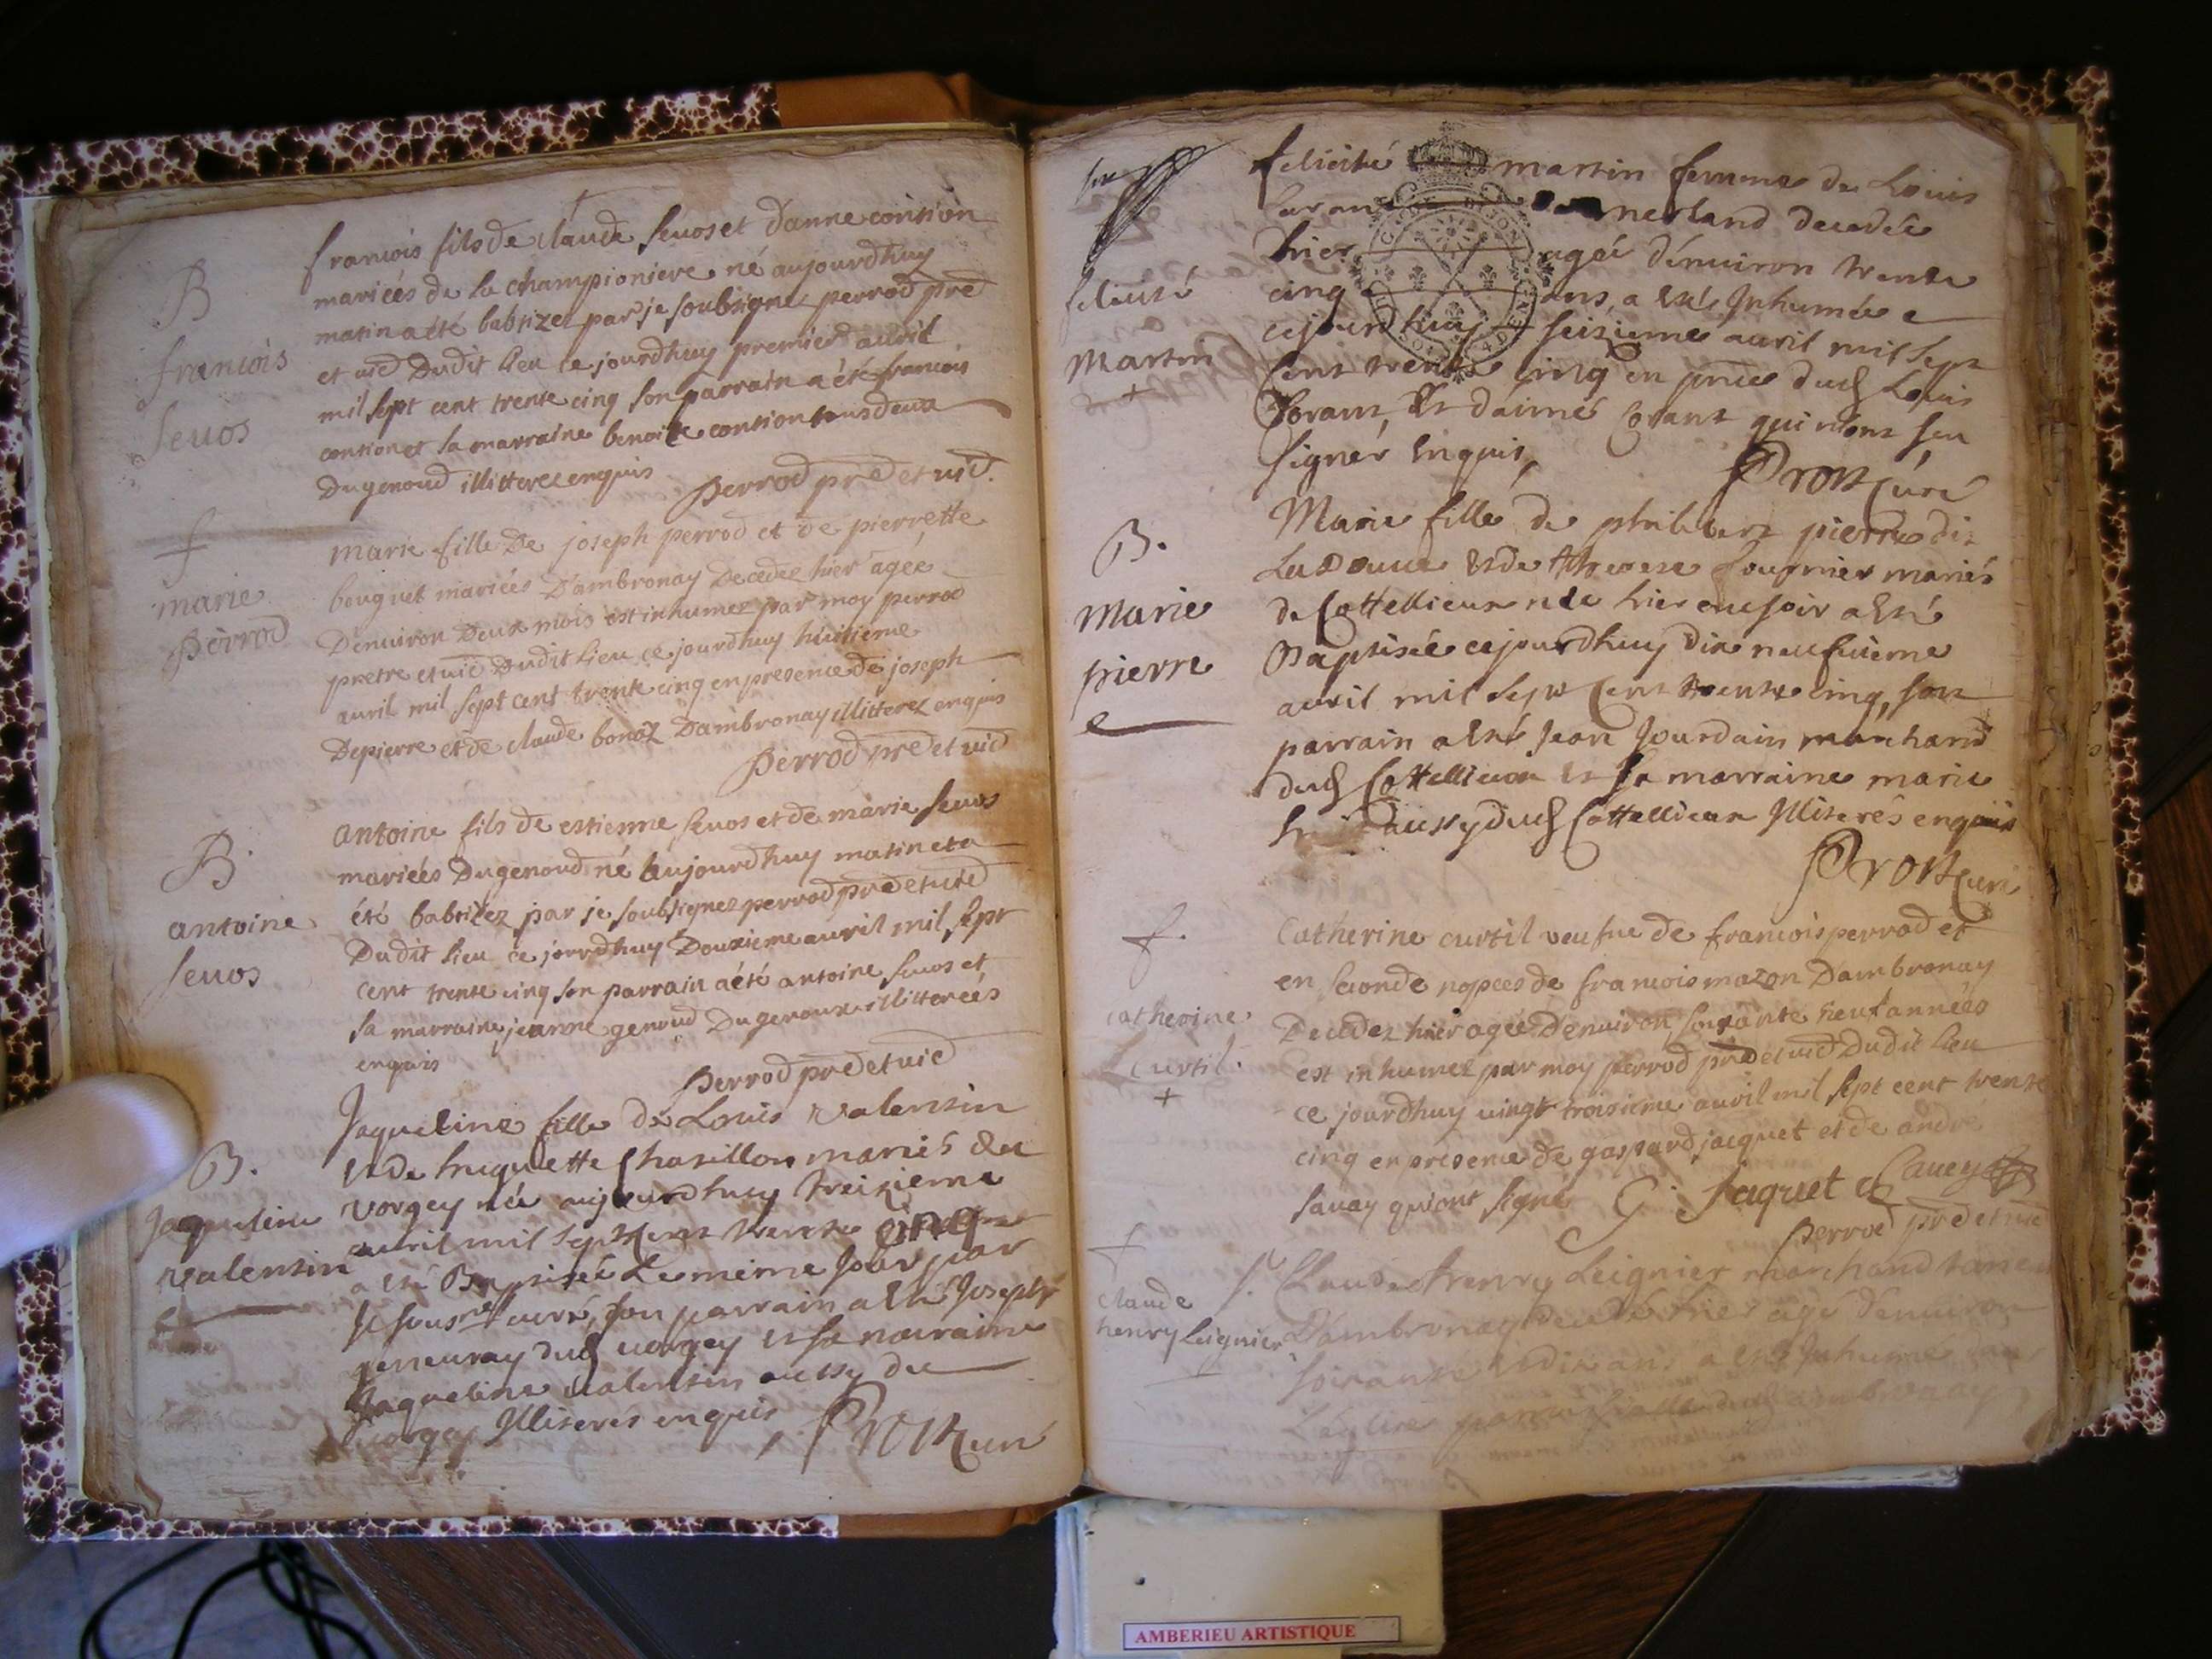 B
francois
seuos
francois fils de claude seuos et d'anne contion
mariées de la championiere né aujourdhuy
matin a été babtizez par je soubsignez perrod pred
et uicd dudit lieu ce jourdhuy premier auril
mil sept cent trente cinq son parrain a été francois
contion et sa marraine benoite contion tous deux
du genoud illitterez enquis
perrod pred et uicd.
f
marie
perrod
marie fille de joseph perrod et de pierrette
bouquet mariées d'ambronay decedez hier agée
denuiron deux mois est inhumez par moy perrod
pretre et uicd dudit lieu ce jourdhuy huitieme
auril mil sept cent trente cinq en presence de joseph
depierre et de claude bonaz dambronay illitterez enquis
perrod pred et uicd
B
antoine
seuos
antoine fils de estienne seuos et de marie seuos
mariéés du genoud né aujourdhuy matin et a
été babtizez par je soubsignez perrod pred et uicd
dudit lieu ce jourdhuy douzieme auril mil sept
cent trente cinq son parrain a été antoine seuos et
sa marraine jeanne genoud du genoux illitterées
enquis
perrod pred et uicd
B.
Jaqueline
valentin
Jaqueline fille de Louis valentin
et de huguette Chatillon mariés du
vorgey née aujourdhuy treizieme
auril mil sept cent trente cinq
a esté Baptisée le même jour par
je sousne curé, son parrain a esté Joseph
jenneuray dud vorgey et sa maraine
Jaqueline valentin aussy du
vorgey Illiterés enquis
Prost curé
felicité
Martin
+
felicité martin femme de Louis
nerland decedée
hier agée dénuiron trente
cinq ans, a esté Inhumée
cejourdhuy seizieme auril mil sept
cent trente cinq en pnce dud Louis
Corant, et d'aimé Corant qui n'ont sçu
signer enquis,
Prost curé
B.
Marie
pierre
Marie fille de philibert pierre dit
et de therese fournier mariés
de Cottellieux née hier au soir a esté
Baptisée cejourdhuy dix neufuieme
auril mil sept cent trente cinq, son
parrain a esté Jean Jourdain marchand
dud Cottellieux et sa marraine marie
aussy dud Cottellieux Illiterés enquis
Prost curé
f.
catherine
Curtil.
+
Catherine curtil veufue de francois perrod et
en seconde nopces de francois mazon Dambronay
Decedez hier agée denuiron soixante neuf années
est inhumez par moy perrod pred et uicd dudit lieu
ce jourdhuy uingt troisieme auril mil sept cent trente
cinq en présence de gaspard jacquet et de andré
sauay qui ont signé
G. Jaquet
perrod pred et uicd
f
claude
henry Leignier
Claude henry Leignier marchand
D'ambronay decedé hier agé dénuiron
soixante et dix ans a esté Inhumé
L'église parroissialle d'ambronay
AMBERIEU ARTISTIQUE